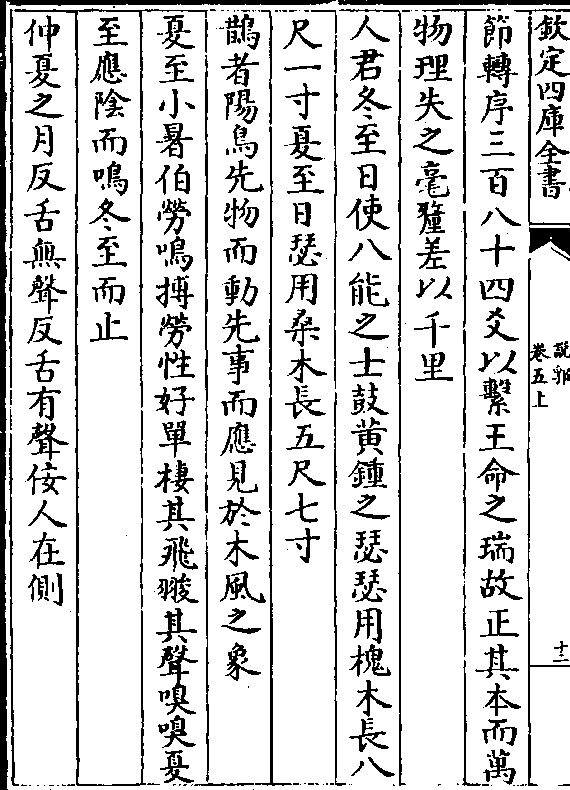 欽定四庫全書
說郛
卷五上
十二
節轉序三百八十四爻以繫王命之瑞故正其本而萬
物理失之毫釐差以千里
人君冬至日使八能之士鼓黃鍾之瑟瑟用槐木長八
尺一寸夏至日瑟用桑木長五尺七寸
鵲者陽鳥先物而動先事而應見於木風之象
夏至小暑伯勞鳴搏勞性好單棲其飛翪其聲嗅嗅夏
至應陰而鳴冬至而止
仲夏之月反舌無聲反舌有聲佞人在側